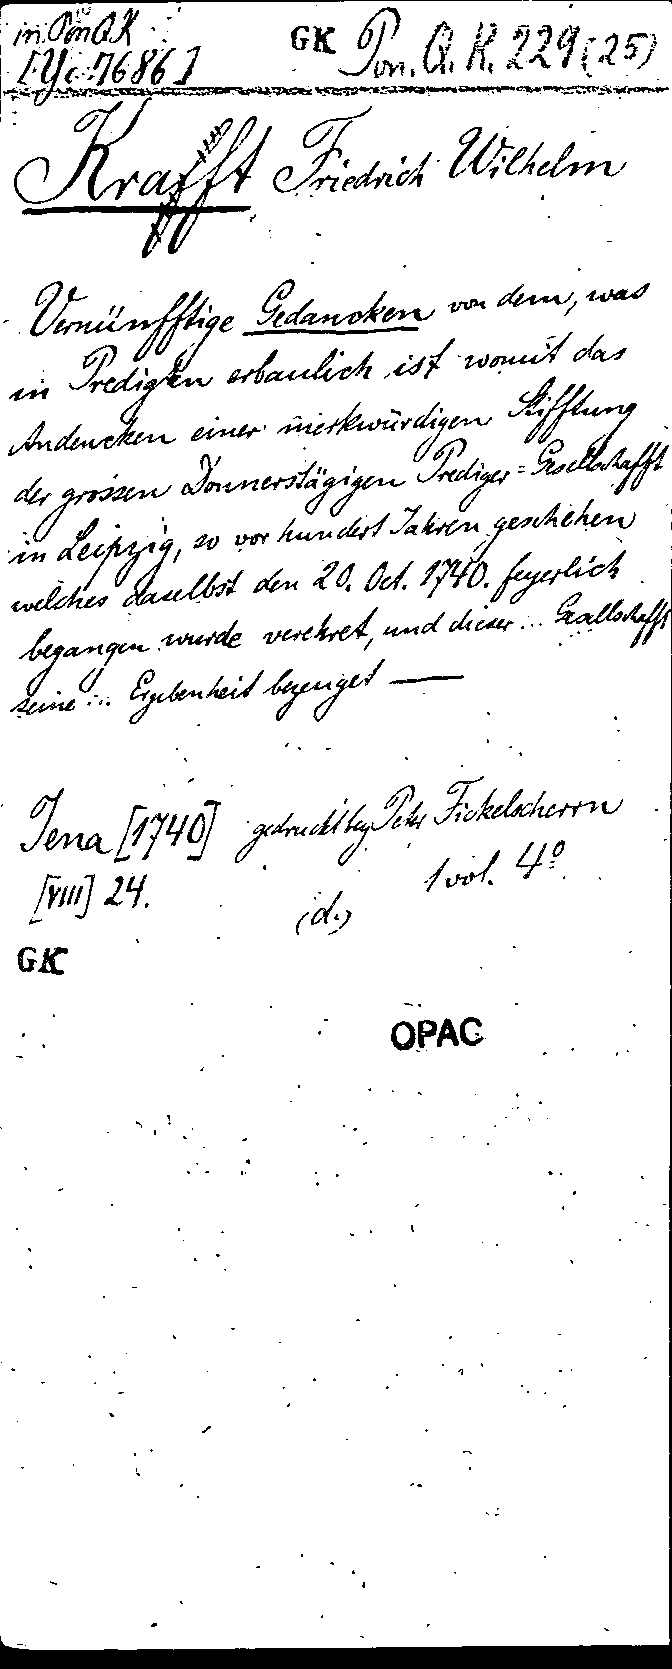 in Pon Q K
[Yc 7686]
GK Pon. Q. K. 229 (25)
Krafft Friedrich Wilhelm
Vernünfftige Gedancken von dem, was
in Predigten erbaulich ist womit das
Andencken einer merkwürdigen Stifftung
der grossen Donnerstägigen Prediger=Gesellschafft
in Leipzig, so vor hundert Jahren geschehen
welches daselbst den 20. Oct. 1740. feyerlich
begangen wurde verehret, und dieser... Gesellschafft
seine... Ergebenheit bezeuget —
Jena [1740] gedruckt bey Peter Fickelscherrn
[VIII] 24. 1 vol. 4º
(d.)
GK
OPAC